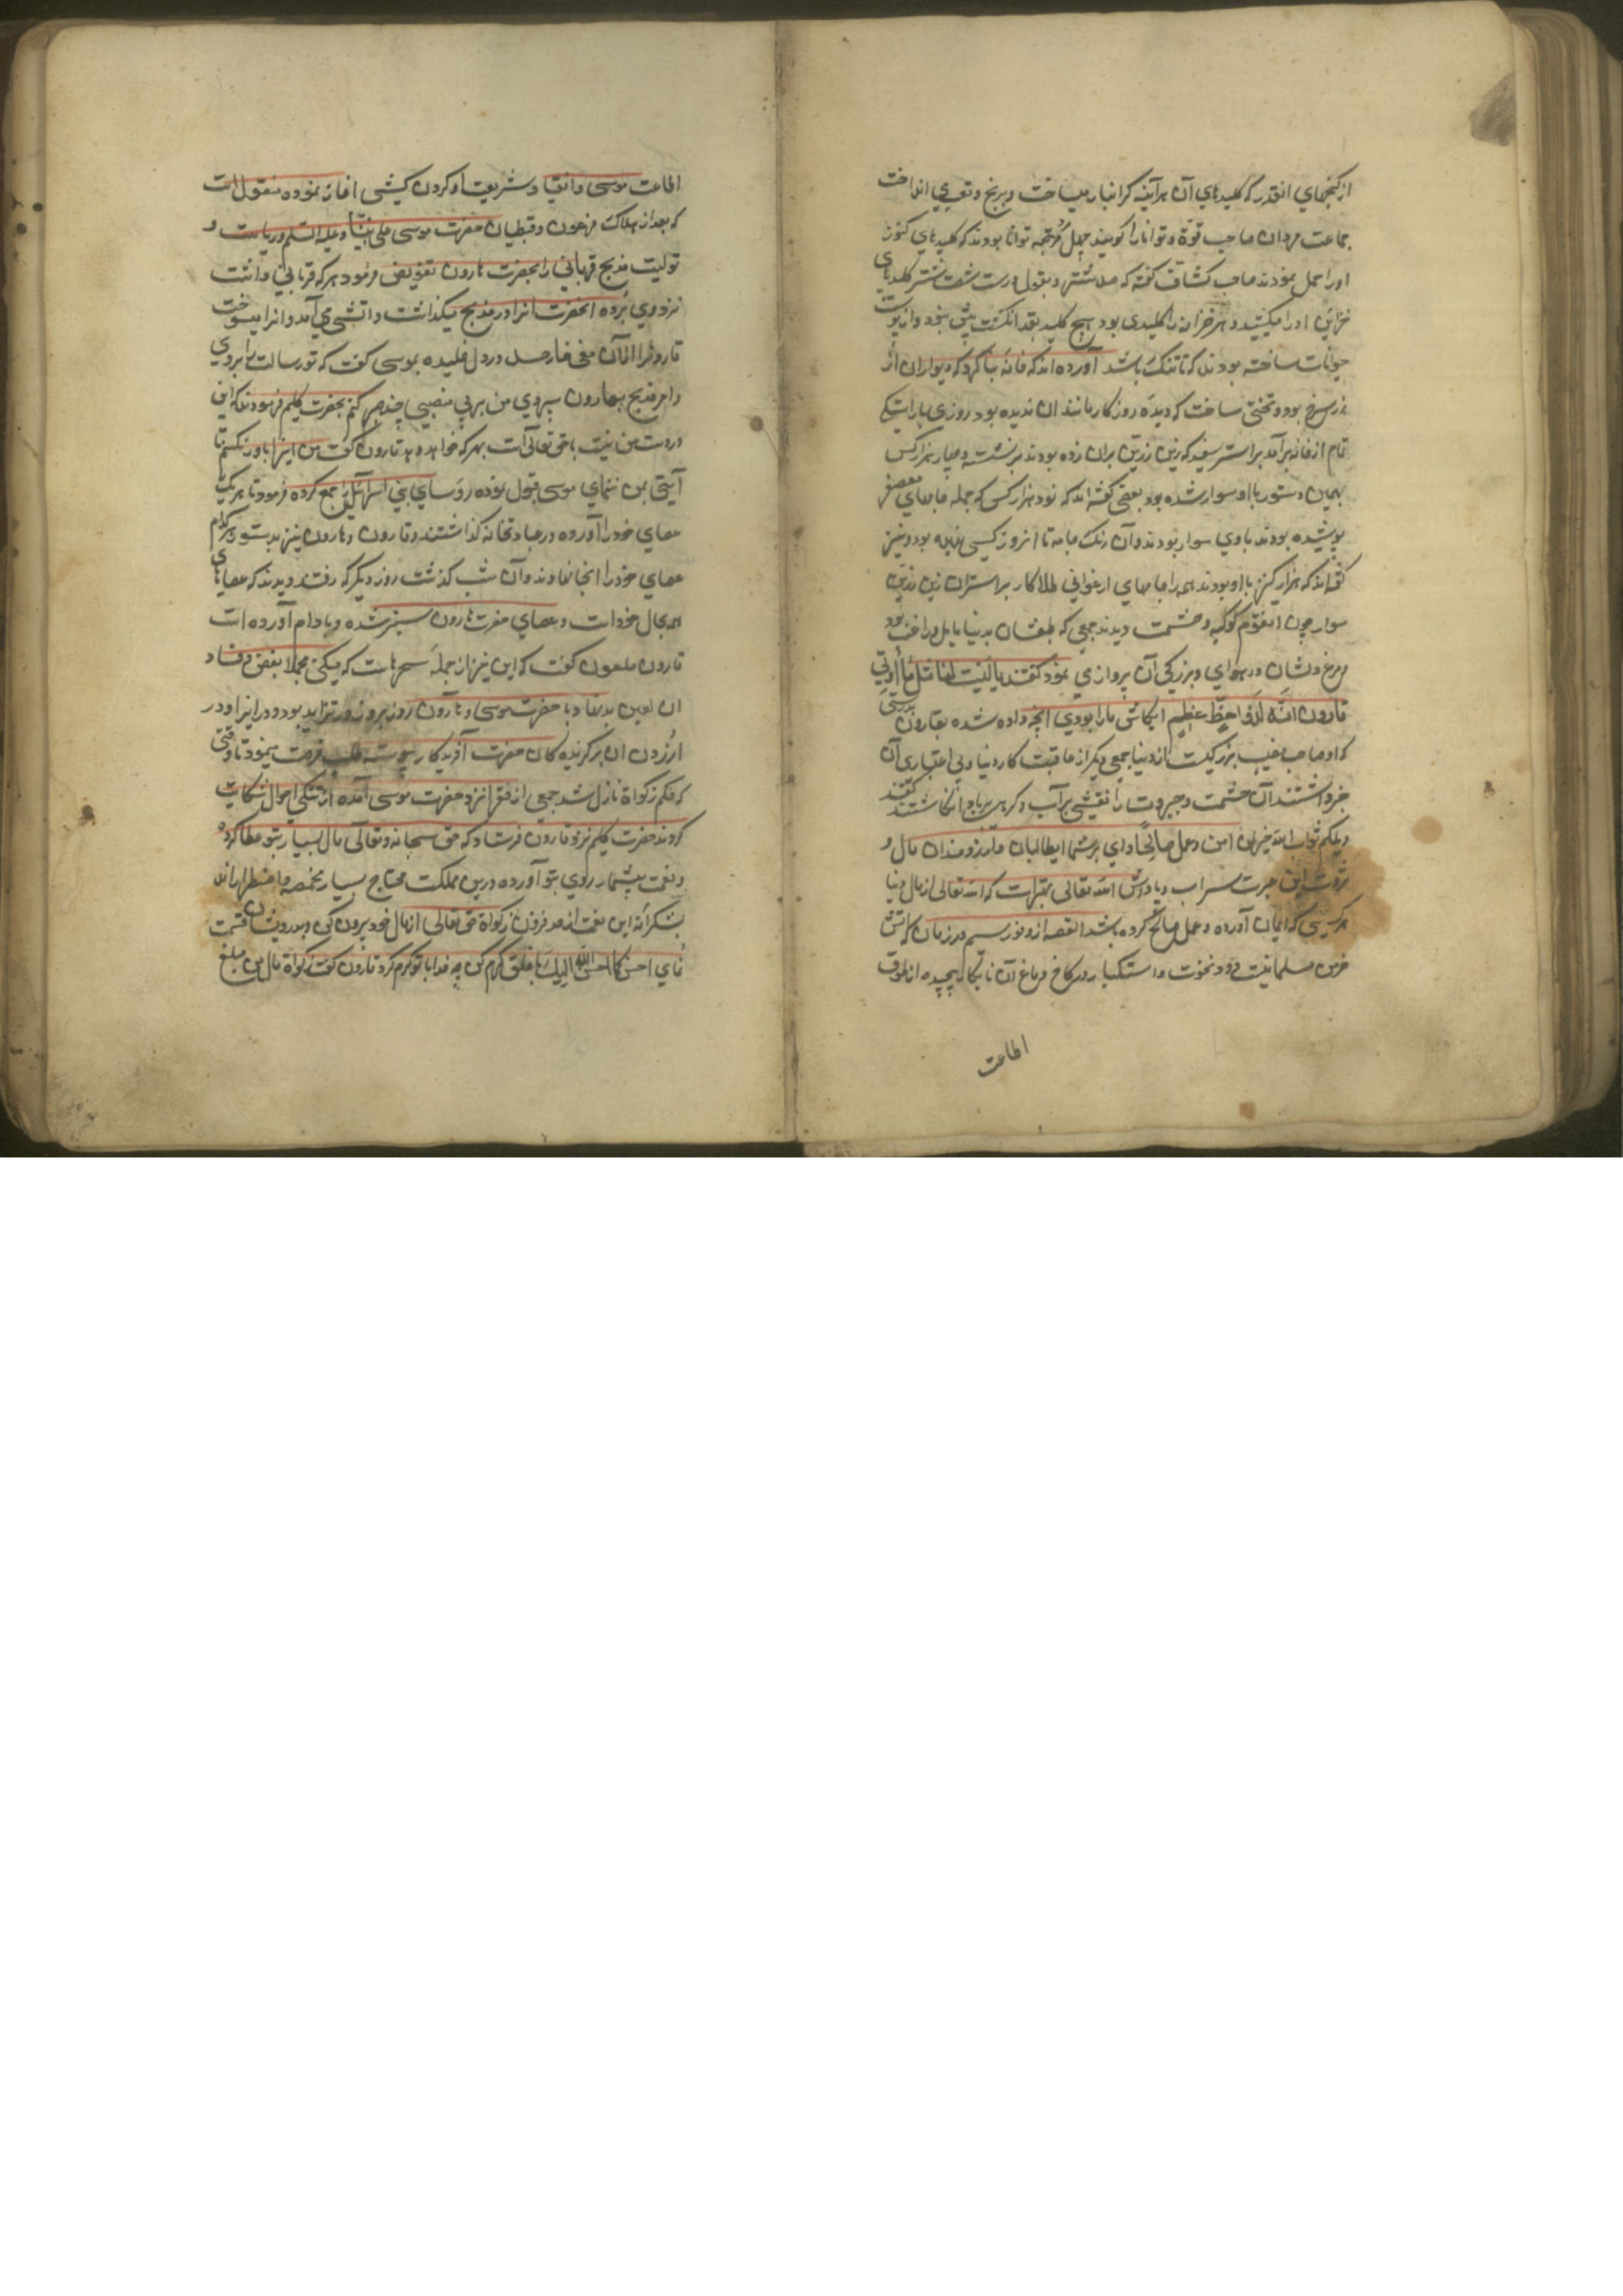 از گنجهای انقدر که کلیدهای آن هرآینه گرانبار میساخت و برنج و تعب می انداخت
جماعت مردان صاحب قوة و توانا را کویند چهل مرد توانا بودند که کلیدهای کنوز
او را حمل نمودند صاحب کشاف کفته که شتر و بقول درست شصت شتر کلیدهای
خزاین او را میکشید و هر خزانه را کلیدی بود هیچ کلید بقد انکشت بیش نبود و از پوست
حیوانات ساخته بودند که تا تنک باشد آورده اند که خانه بنا کرد که دیواران از
زر سرخ بود و تختی ساخت که دیده روزکار مانند ان ندیده بود روزی باراستکی
تمام از خانه برآمد بر استر سفید که زین زرین بران زده بودند برنشسته و چهار هزار کس
بهمان دستور با او سوار شده بود بعضی کفته اند که نود هزار کس که جمله جامهای معصفر
پوشیده بودند با وی سوار بودند و آن رنک جامه تا انروز کسی ندیده بود و نیز
کفته اند که هزار کنیز با او بودند همه را جامهای ارغوانی طلاکار بر استران زین زرین
سوار چون انقوم کوکبه و حشمت دیدند جمعی که طبعشان بدنیا مایل و راغب بود
و مرغ دلشان در هوای و بزرکی آن پرواز می نمود کفتند یا لیت لنا مثل ما أوتی
قارون انه لذو احظ عظیم ایکاش ما را بودی انچه داده شده بقارون بدرستی
که او صاحب نصیب بزرکیست از دنیا جمعی دیکر از عاقبت کار دنیا و بی اعتباری آن
خبر داشتند آن حشمت و جبروت را نقشی بر آب و کرهی بر باد انکاشتند کفتند
ویلکم ثواب الله خیر لمن امن و عمل صالحًا وای بر شما ایطالبان و آرزومندان مال و
ثروت این سراب و پاداش الله تعالی بهتر است که الله تعالی از مال دنیا
هر کسی که ایمان آورده و عمل صالح کرده باشد القصه از
خرمن مسلمانیست دود نخوت و استکبار در کاخ دماغ آن نابکار پیچیده از طوق
اطاعت
اطاعت موسی و انقیاد شریعت او کردن کشی اغاز نموده منقول است
که بعد از هلاک فرعون و قبطیان حضرت موسی علی نبینا و علیه السلم و ریاست و
تولیت مذبح قربانی را بحضرت هارون تفویض فرمود هر که قربانی داشت
نزد وی بُرده انحضرت انرا در مذبح میکذاشت و اتشی می آمد و انرا میسوخت
قارونرا ازان معنی خار حسد در دل خلیده بموسی کفت که تو رسالت را بردی
و امر مذبح بهارون سپردی من بر بی منصبی چند صبر کنم بحضرت کلیم فرمودند که این
در دست من نیست باحق تعالی است بهر که خواهد دهد قارون کفت من اینرا باور نکنم تا
آیتی بمن ننمای موسی قبول نموده روسای بنی اسرائیل را جمع کرده فرمود تا هر یک
عصای خود را آورده در عبادتخانه کذاشتند و قارون و هارون نیز بدستور هر کدام
عصای خود را انجا نهادند و آن شب کذشت روز دیکر که رفتند دیدند که عصاهای
همه بحال خود است و عصای حضرت هارون سبز شده و بادام آورده است
قارون ملعون کفت که این نیز از جمله سحرهاست که میکنی مجملا بغض و فساد
ان لعین با حضرت موسی و هارون روز بروز در تزاید بود و در ایزا و در
ازردن ان برکزیده کان حضرت آفریدکار پیوسته طلب فرصت مینمود تا وقتی
که حکم زکواة نازل شد جمعی از فقرا نزد حضرت موسی آمده از تنکی احوال شکایت
کردند حضرت کلیم نزد قارون فرستاد که حق سبحانه و تعالی مال بسیار بتو عطا کرده
و نعمت بیشمار روی بتو آورده درین مملکت محتاج بسیار بمخمصه و اضطرار اند
بشکرانه این نعمت از حد فزون زکواة حق تعالی از مال خود بیرون کن و بدرویشان قسمت
نمای احسن کما احسن الله الیک با خلق کرم کن چه خدا با تو کرم کرد قارون کفت زکواة مال من مبلغ